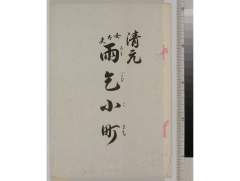 清元
雨乞小町